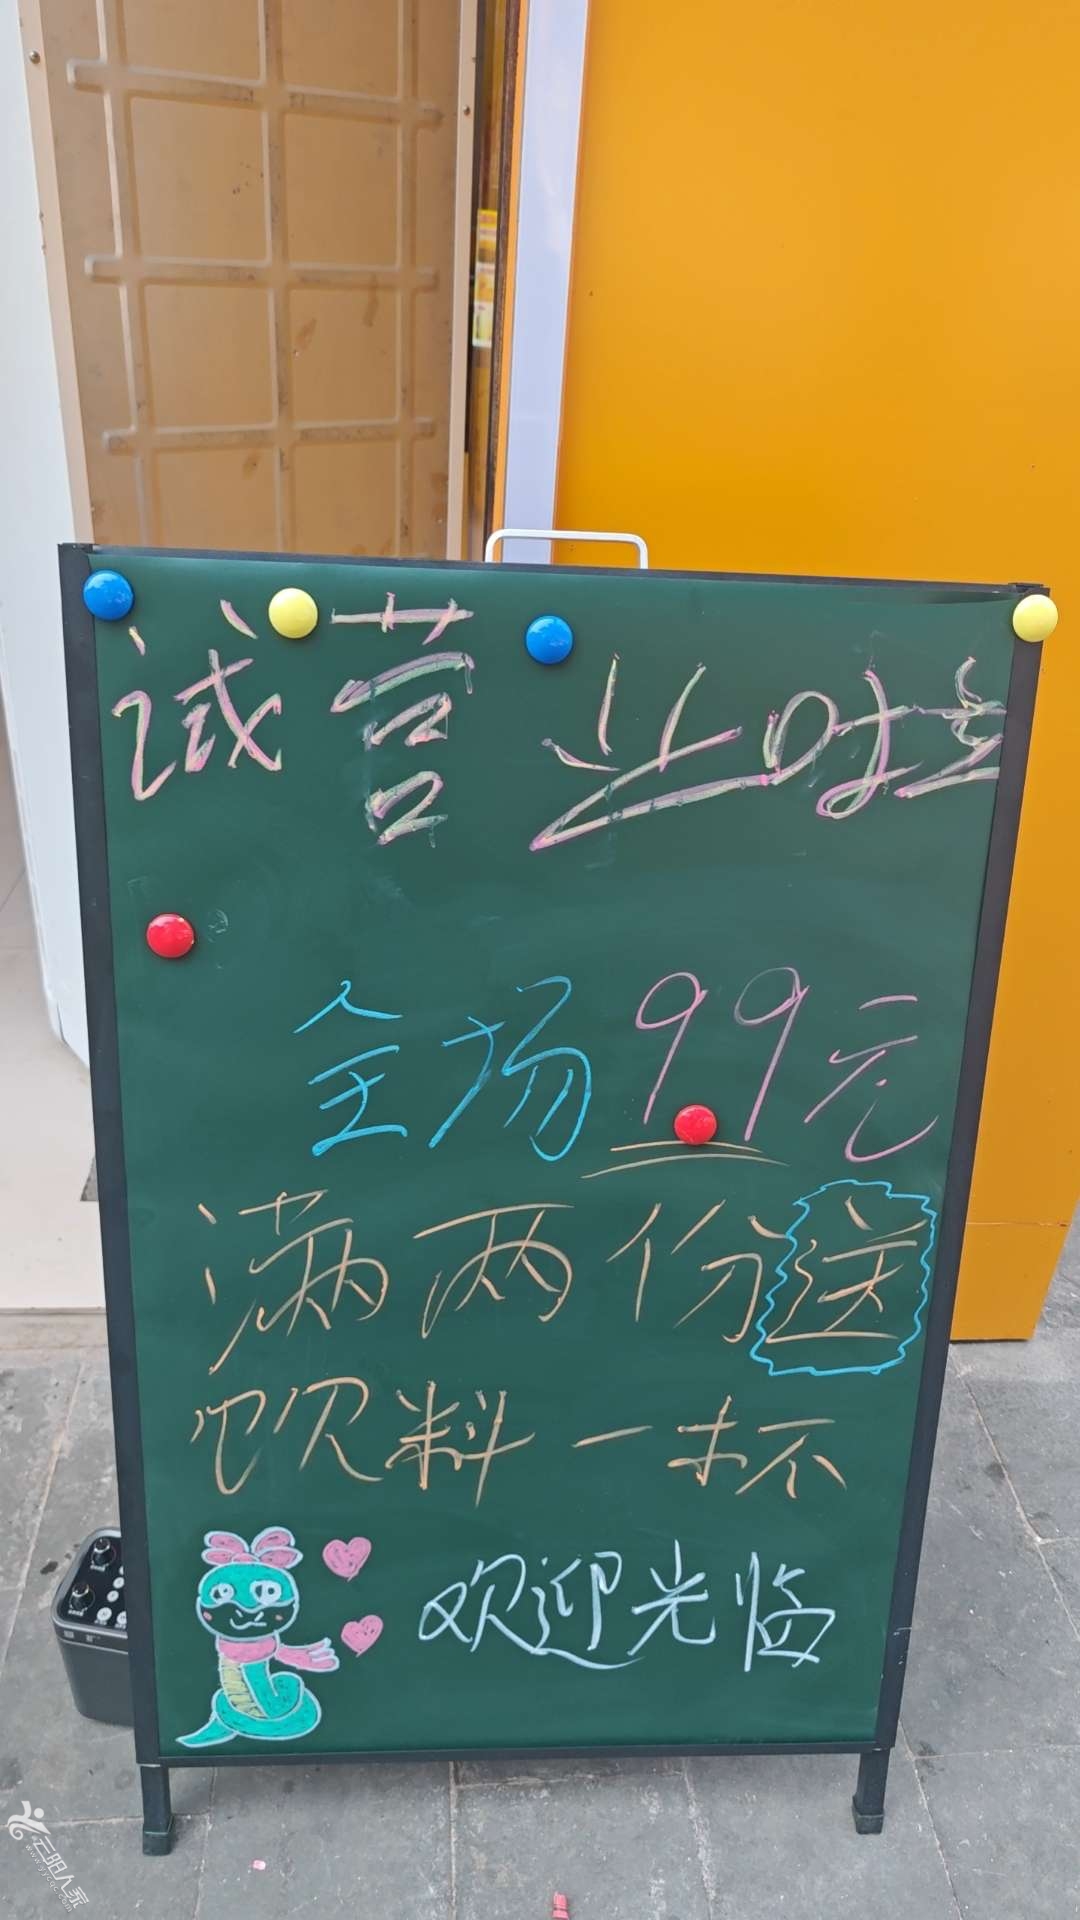 试营业时
全场9.9元
满两份送
饮料一杯
欢迎光临
云阳人家